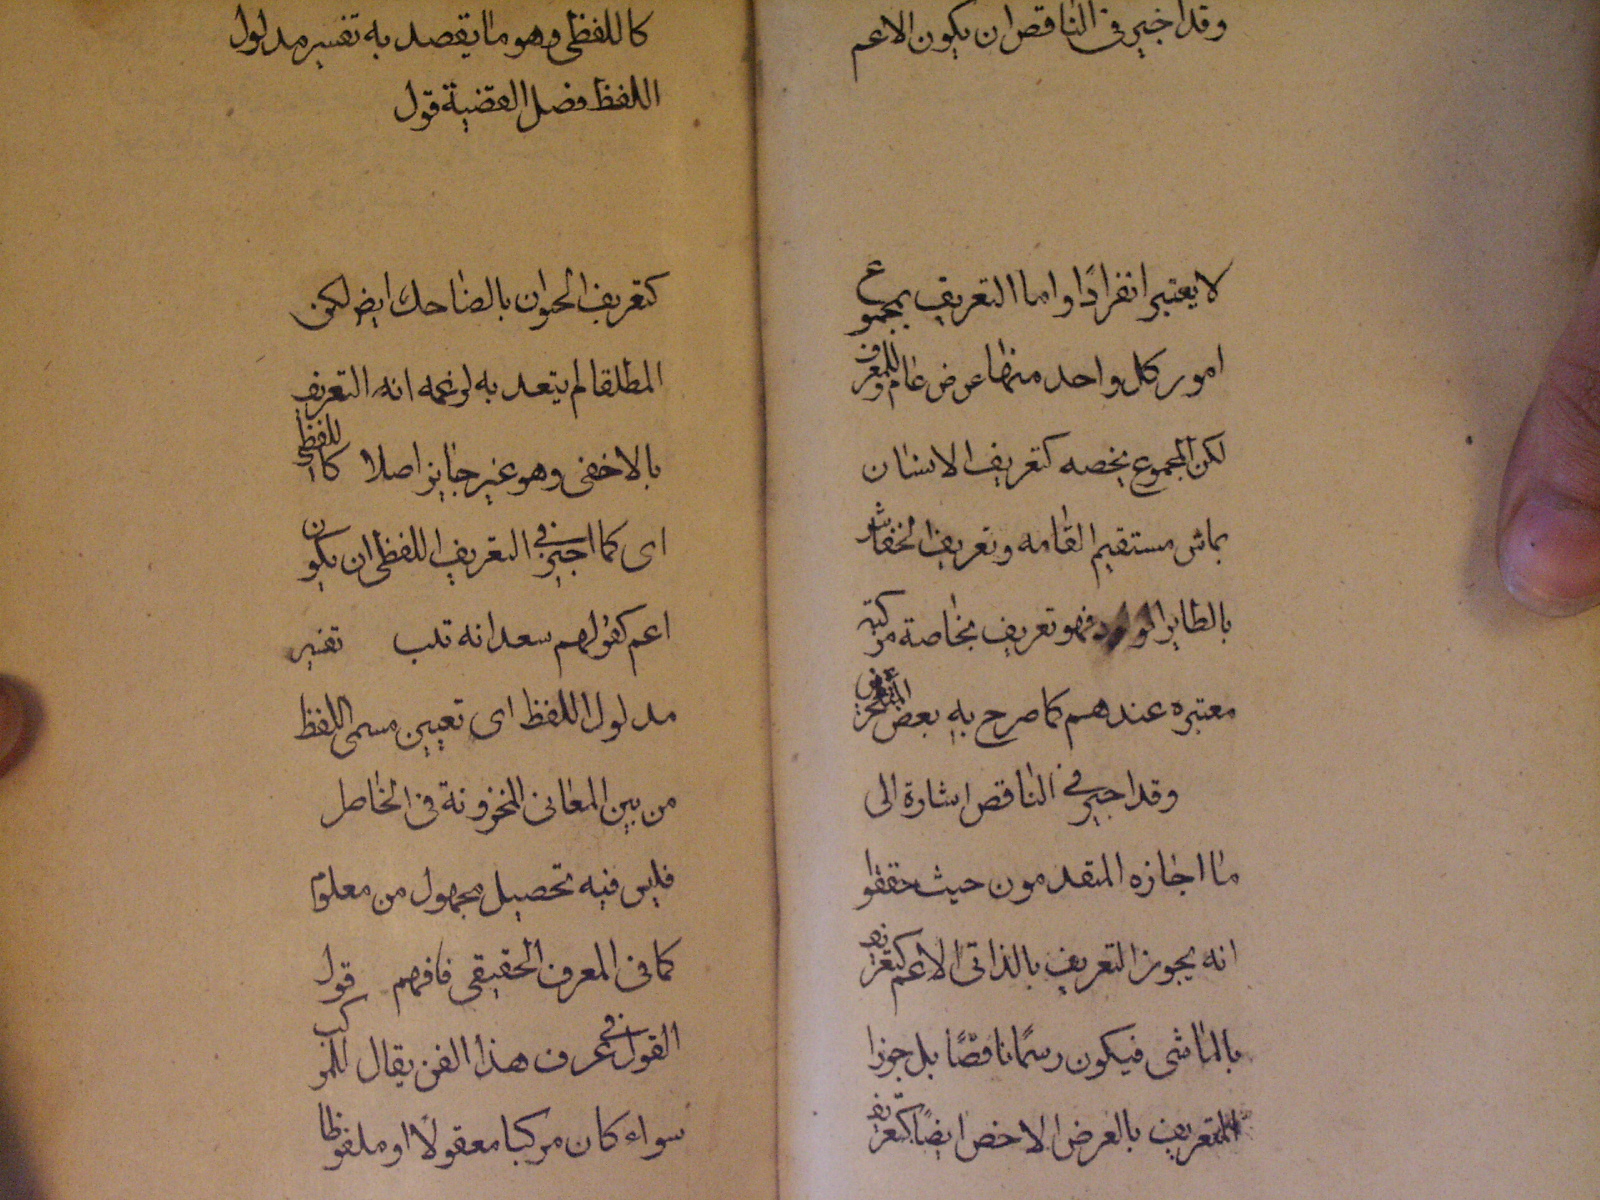 وقد اجيز فى الناقص ان يكون الاعم
لا يعتبر انفرادًا واما التعريف بمجموع
امور كل واحد منها عرض عام للمعرف
لكن المجموع يخصه كتعريف الانسان
بماش مستقيم القامه وتعريف الخفاش
بالطاير الولود فهو تعريف بخاصة مركبة
معتبره عندهم كما صرح به بعض المتأخرين
وقد اجيز فى الناقص اشارة الى
ما اجازه المتقدمون حيث حققوا
انه يجوز التعريف بالذاتى الاعم كتعريفه
بالماشى فيكون رسمًا ناقصًا بل جوزوا
التعريف بالعرض الاخص ايضًا كتعريف
كاللفظى وهو ما يقصد به تفسير مدلول
اللفظ فصل القضية قول
كتعريف الحيوان بالضاحك ايض لكن
المط لقا لم يتعد به لزعمه انه التعريف
بالاخفى وهو غير جايز اصلا كاللفظى
اى كما اجيز فى التعريف اللفظى ان يكون
اعم كقولهم سعدانه تفسير
مدلول اللفظ اى تعيين مسمى اللفظ
من بين المعانى المخزونة فى الخاطر
فليس فيه تحصيل مجهول من معلوم
كما فى المعرف الحقيقى فافهم قول
القول فى عرف هذا الفن يقال للمركب
سواء كان مركبا معقولًا او ملفوظا